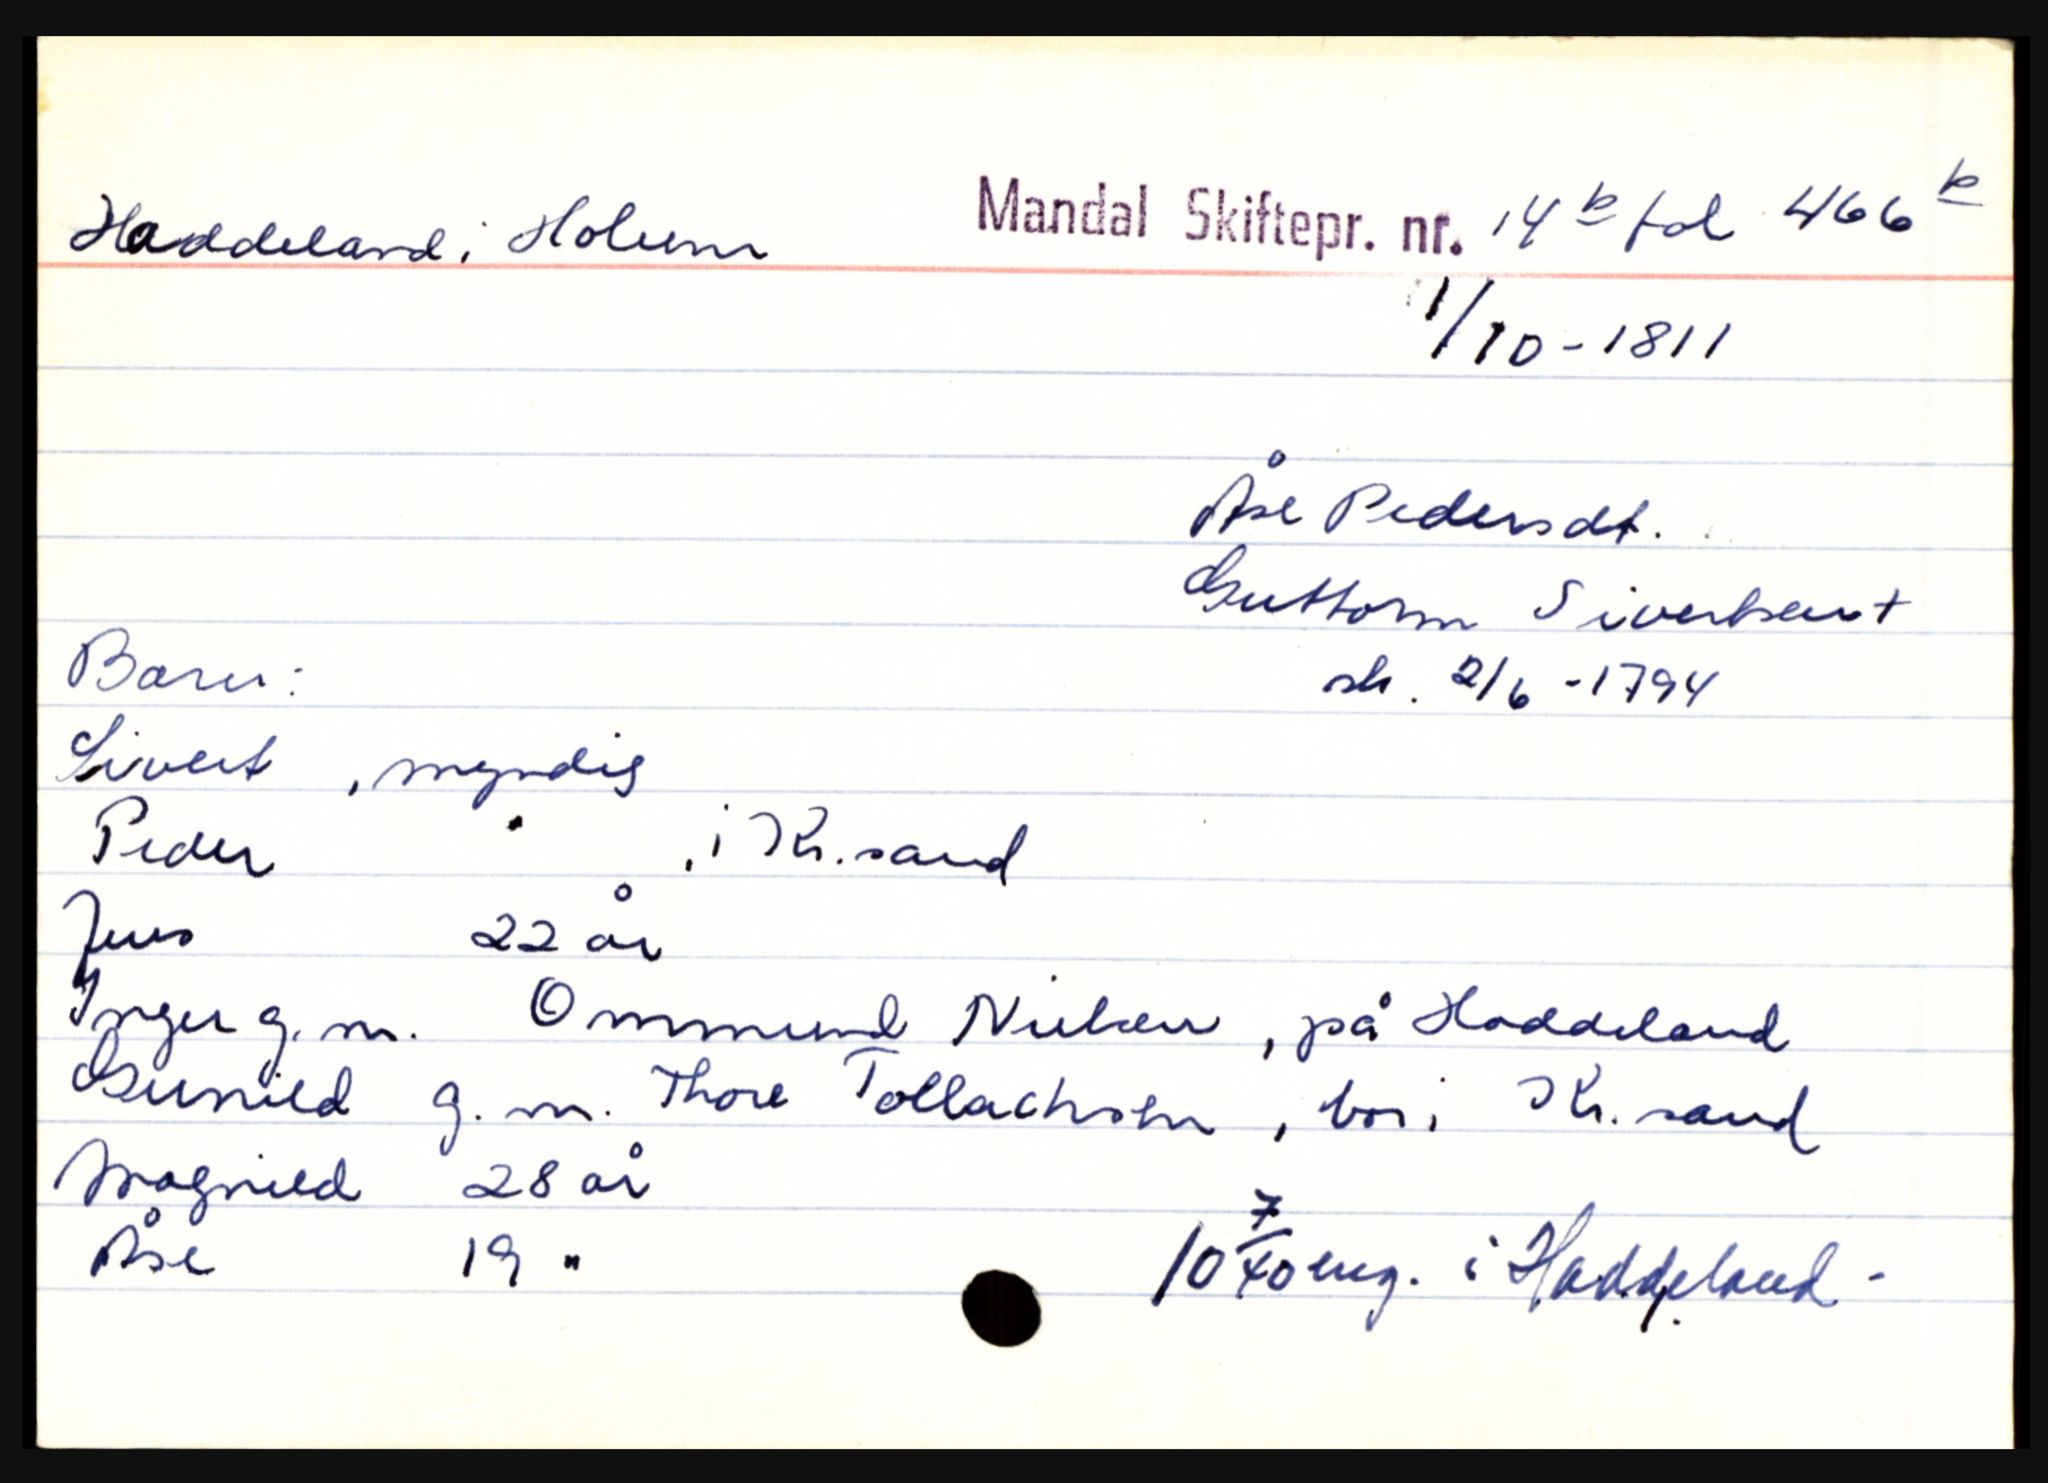 Haddeland, i Holum Mandal Skiftepr. nr. 14 b fol 466 b
1/10 - 1811
Åse Pedersdt.
Guttorm Sivertsen +
sk. 2/6 - 1794
Barn:
Sivert , myndig
Peder " , i Kr.sand
Jens 22 år
Inger g. m. Ommund Nielsen , på Haddeland
Gunild g. m. Thore Tollachsen , bor i Kr. sand
Magnild 28 år
Åse 19 "
10 7/40 eng. i Haddeland -